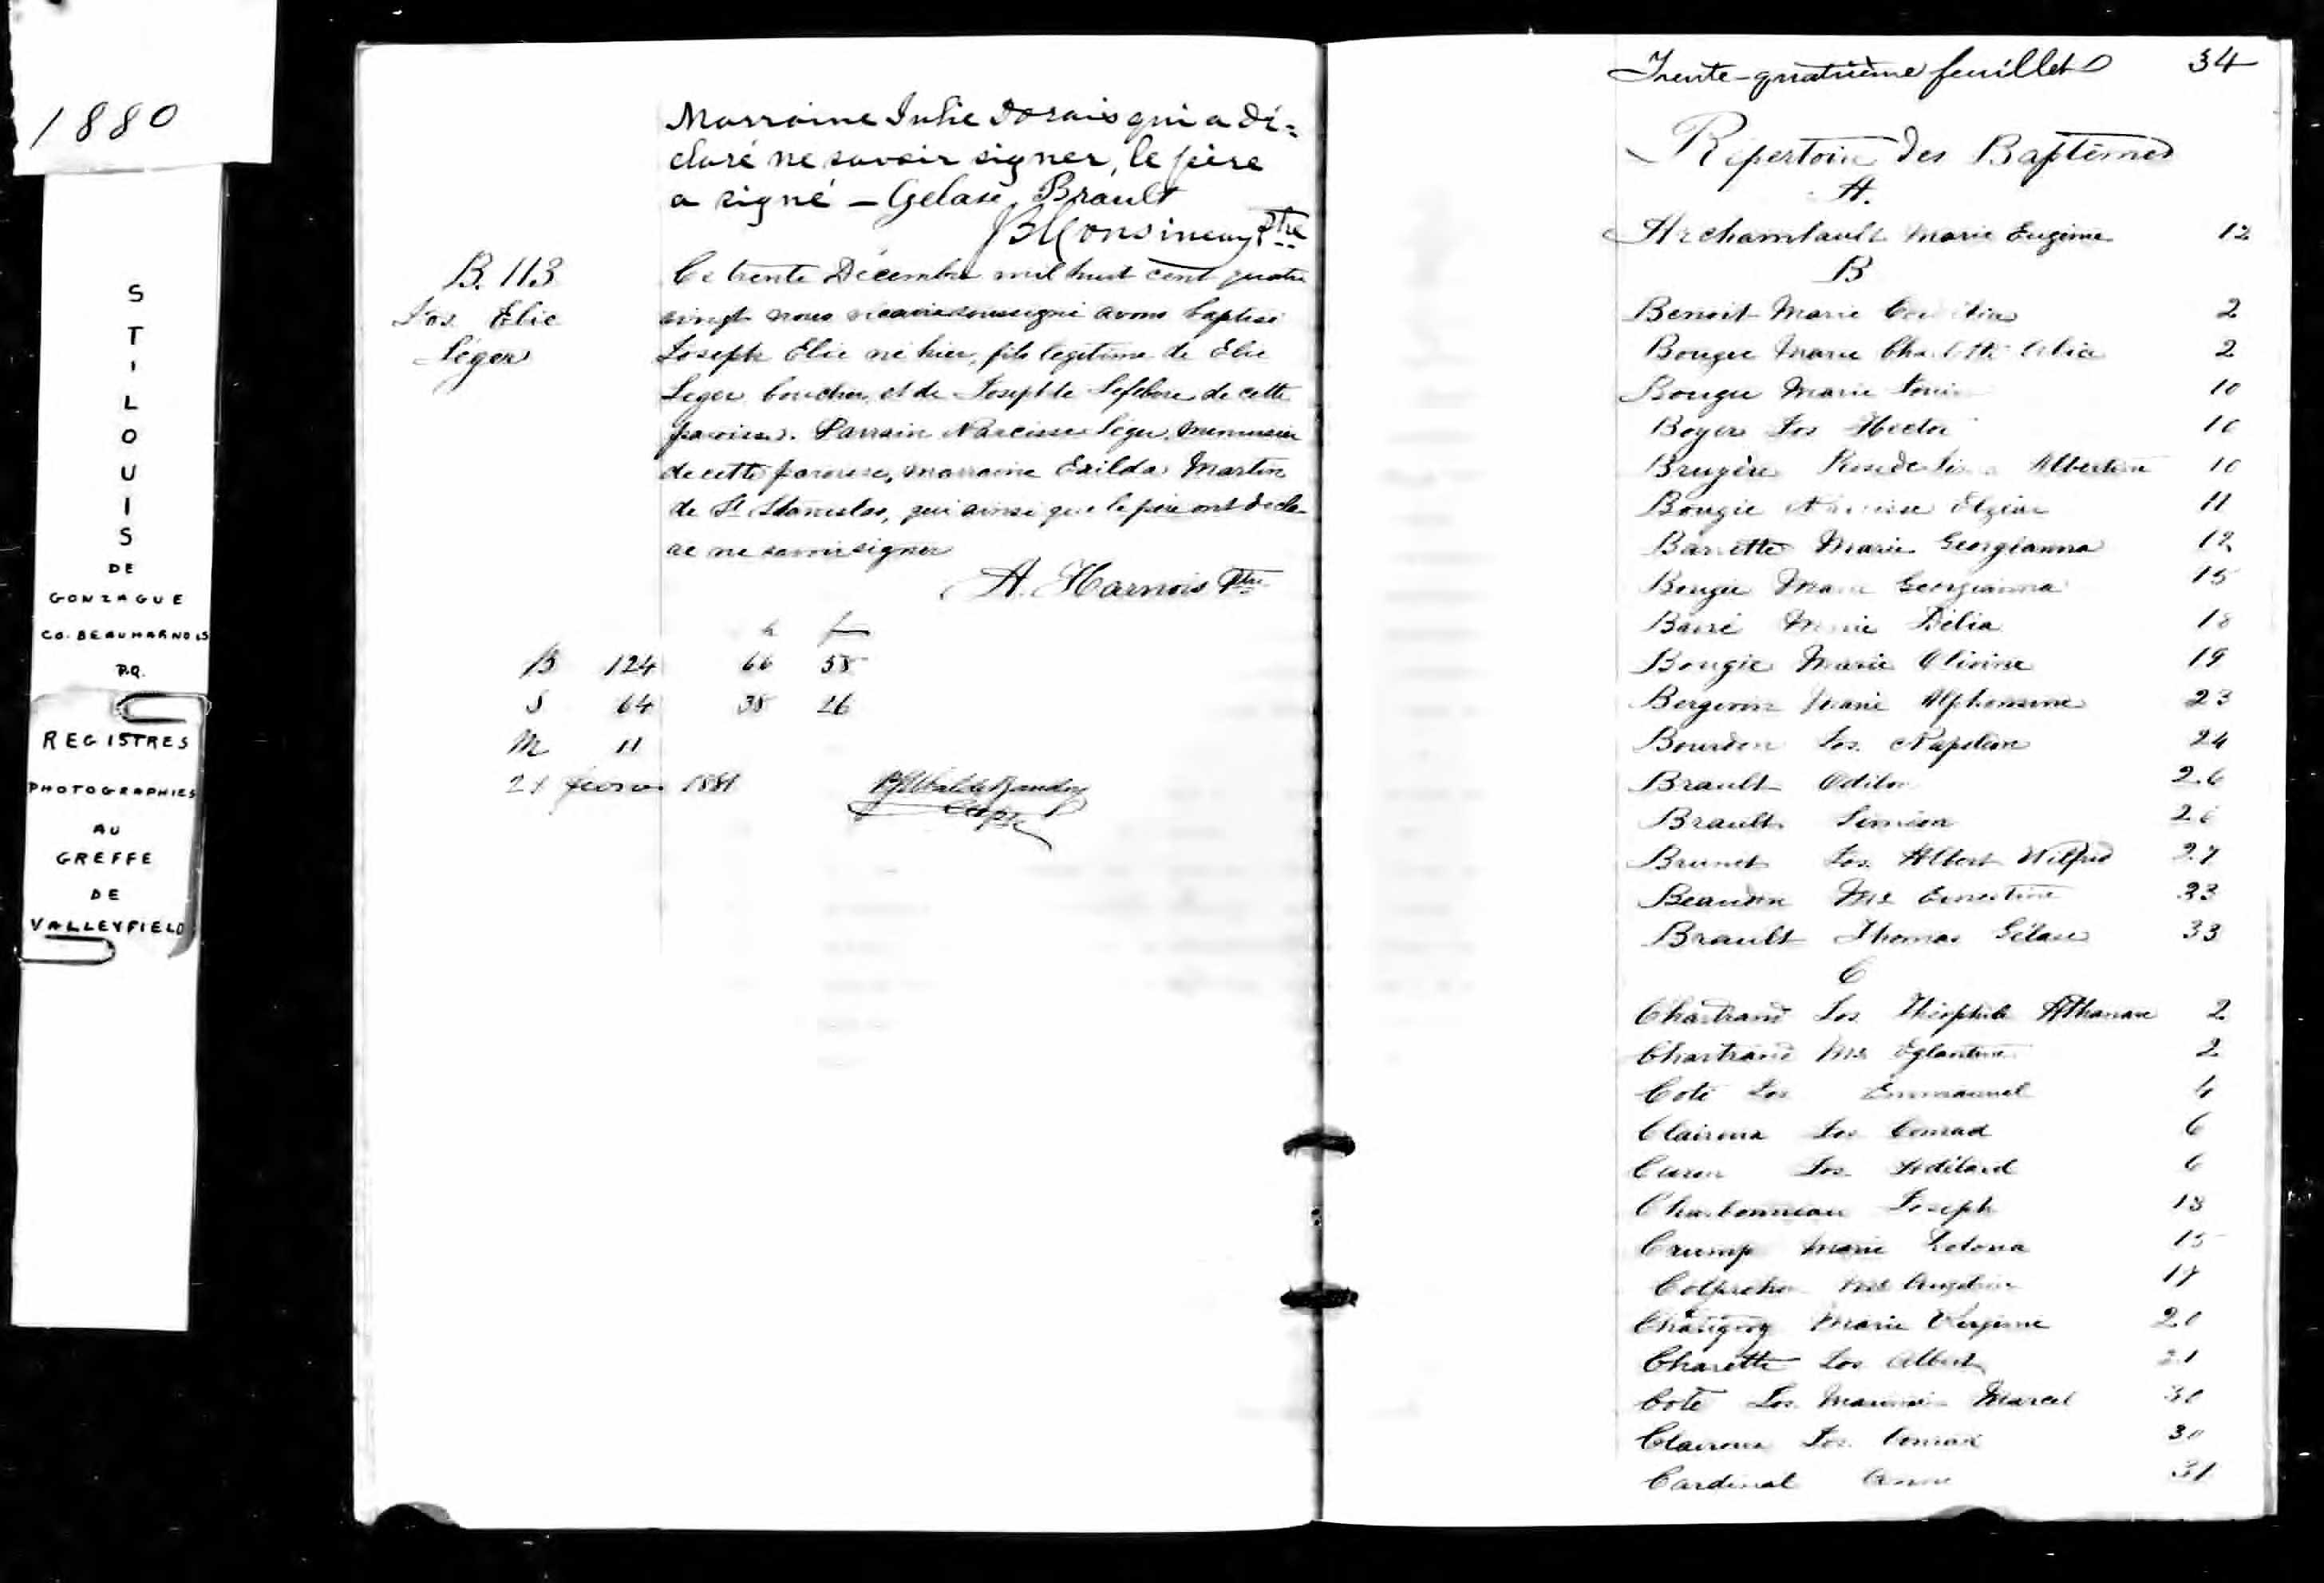 1880
ST. LOUIS
DE
GONZAGUE
CO. BEAUHARNOIS
P.Q.
REGISTRES
PHOTOGRAPHIES
AU
GREFFE
DE
VALLEYFIELD
Marraine Julie Dorais qui a dé=
claré ne savoir signer, le père
a signé — Gelase Brault
Ptre
B. 113
Jos. Elie
Léger
Ce trente Décembre mil huit cent quatre
vingt nous vicaire soussigné avons baptisé
Joseph Elie né hier, fils legitime de Elie
Leger boucher et de Josephte Lefebvre de cette
paroisse. Parrain Narcisse Léger, menuisier
de cette paroisse, marraine Exilda Martin
de St Stanislas, qui ainsi que le père ont decla-
ré ne savoir signer
A. Harnois Ptre
h f
B 124 66 58
S 64 38 26
M 11
1881
Trente-quatrième feuillet 34
Répertoire des Baptêmes
A.
Archambault Marie Eugénie 12
B
Benoit Marie 2
Bougie Marie 2
Bougie Marie 10
Boyer Jos Hector 10
Brugère Albertine 10
Bougie Narcisse Elzéar 11
Barrette Marie Georgianna 12
Bougie Marie Georgianna 15
Barré Marie Délia 18
Bougie Marie Olivine 19
Bergevin Marie Alphonsine 23
Bourdon Jos. Napoléon 24
Brault Odilon 26
Brault Siméon 26
Brunet Jos. Albert Wilfrid 27
Beaudin Me Ernestine 33
Brault Thomas Gélase 33
C
Chartrand Jos Théophile Athanase 2
Chartrand Me Eglantine 2
Coté Jos Emmanuel 4
Clairoux Jos Conrad 6
Jos Adélard 6
Charbonneau Joseph 13
Crump Marie 15
Me 17
Marie 20
Charette Jos Albert 21
Coté Jos. Marcel 30
Clairoux Jos. Conrad 30
Cardinal 31